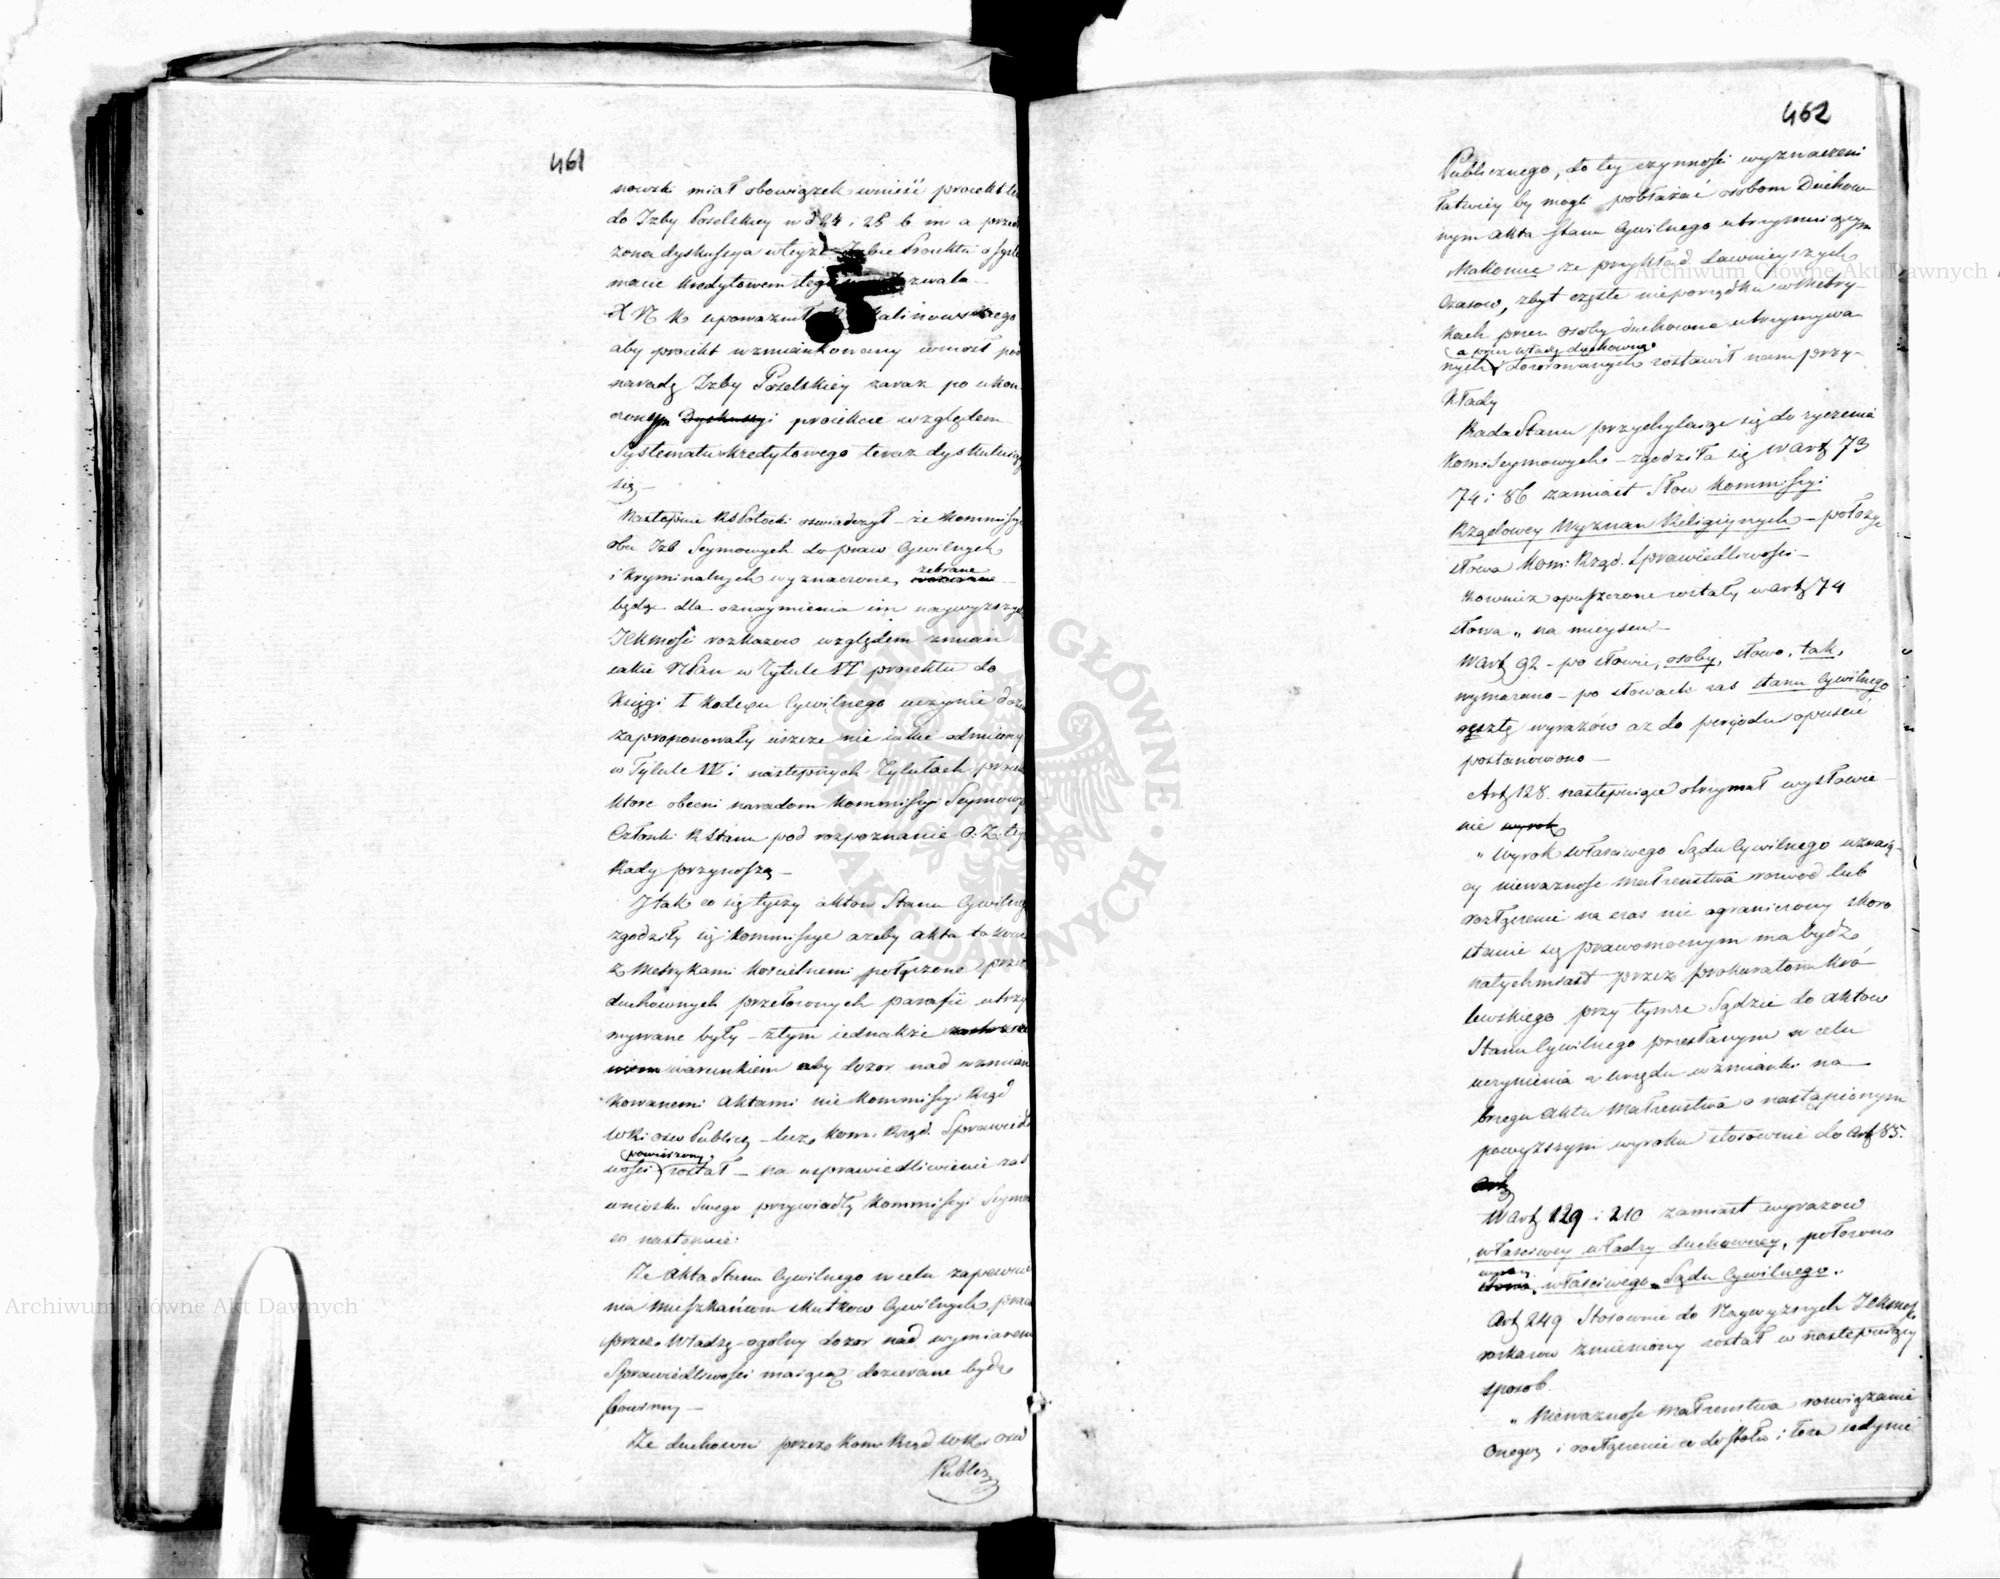 461
nowski miał obowiązek wnieść proiekt te
do Izby Poselskiey w d 24 i 25 b m a przed
żona dyskussya w teyże Izbie Proiektu o syste
macie kredytowem tego zwala
X N K upoważnił Kalinowskiego
aby proiekt wzmiankowany wniosł pod
naradę Izby Poselskiey zaraz po ukoń
czonym Dyskussyi proiekcie względem
Systematu kredytowego teraz dyskutuią
się —
Następnie RS Potocki oswiadczył – że Kommissye
obu Izb Seymowych do praw Cywilnych
i Kryminalnych wyznaczone, zebrane
będąc dla oznaymienia im naywyższych
JCKMości rozkazow względem zmian
iakie NPan w Tytule VI proiektu do
Księgi I Kodexu Cywilnego uczynić
zaproponowały ieszcze nie iakie odmiany
w Tytule IV i następnych Tytułach proie
ktore obecni naradom Kommissyi Seymowych
Członki R Stanu pod rozpoznanie O: Z: tey
Rady przynoszą —
I tak co się tyczy aktow Stanu Cywilneg
zgodziły się Kommissye ażeby akta takowe
z Metrykami Kościelnemi połączone przez
duchownych przełożonych parafii utrzy
mywane były – z tym iednakże
warunkiem aby dozor nad wzmian
kowanemi Aktami nie Kommissyi Rząd
WRi Ośw Publicz – lecz Kom: Rząd. Sprawiedli
powierzony
wości został – na usprawiedliwienie zaś
wniosku Swego przywiodły Kommissyi Seymo
co następuie:
Że Akta Stanu Cywilnego w celu zapewnie
nia mieszkańcom skutkow Cywilnych praw
przez Władzę ogolny dozor nad wymiarem
Sprawiedliwości maiącą dozierane bydź
powinny —
Że duchowni przez Kom Rząd WR i Ośw
Publicz
462
Publicznego, do tey czynności wyznaczeni
łatwiey by mogli pobłażać osobom Duchow
nym Akta Stanu Cywilnego utrzymuiącym
Nakoniec że przykład dawnieyszych
Czasow, zbyt częste nieporządku w Metry-
kach przez osoby duchowne utrzymywa
a przez władzę duchowną
nych dozorowanych zostawił nam przy-
kłady
Rada Stanu przychylaiąc się do życzenia
Kom: Seymowych – zgodziła się w art 73
74 i 86 zamiast słow Kommissyi
Rządowey Wyznań Religiynych – położyć
słowa Kom: Rząd. Sprawiedliwości –
Rownież opuszczone zostały w art 74
słowa „ na mieyscu —
W art 92 – po słowie, osoby, słowo, tak,
wymazano – po słowach zas stanu Cywilnego
resztę wyrazów aż do peryodu opuścić
postanowiono —
Art 128. następuiące otrzymał wysłowie
nie wyrok
„ Wyrok właściwego Sądu Cywilnego uznaią
cy nieważność małżeństwa rozwod lub
rozłączenie na czas nie ograniczony skoro
stanie się prawomocnym ma bydź
natychmiast przez prokuratora Kró
lewskiego przy tymże Sądzie do aktow
Stanu Cywilnego przesłanym w celu
uczynienia z urzędu wzmianki na
brzegu Aktu Małżeństwa o nastąpionym
powyższym wyroku stosownie do Art 85.
Art
W art 129 i 210 zamiast wyrazow
„ właściwey władzy duchowney, położono
wyrazy
słowa „ właściwego Sądu Cywilnego.
Art 249 Stosownie do Naywyższych JCKMości
roskazow zmieniony został w następuiący
sposob.
„ Nieważność Małżeństwa rozwiązanie
onegoż i rozłączenie co do stołu i łoża iedynie